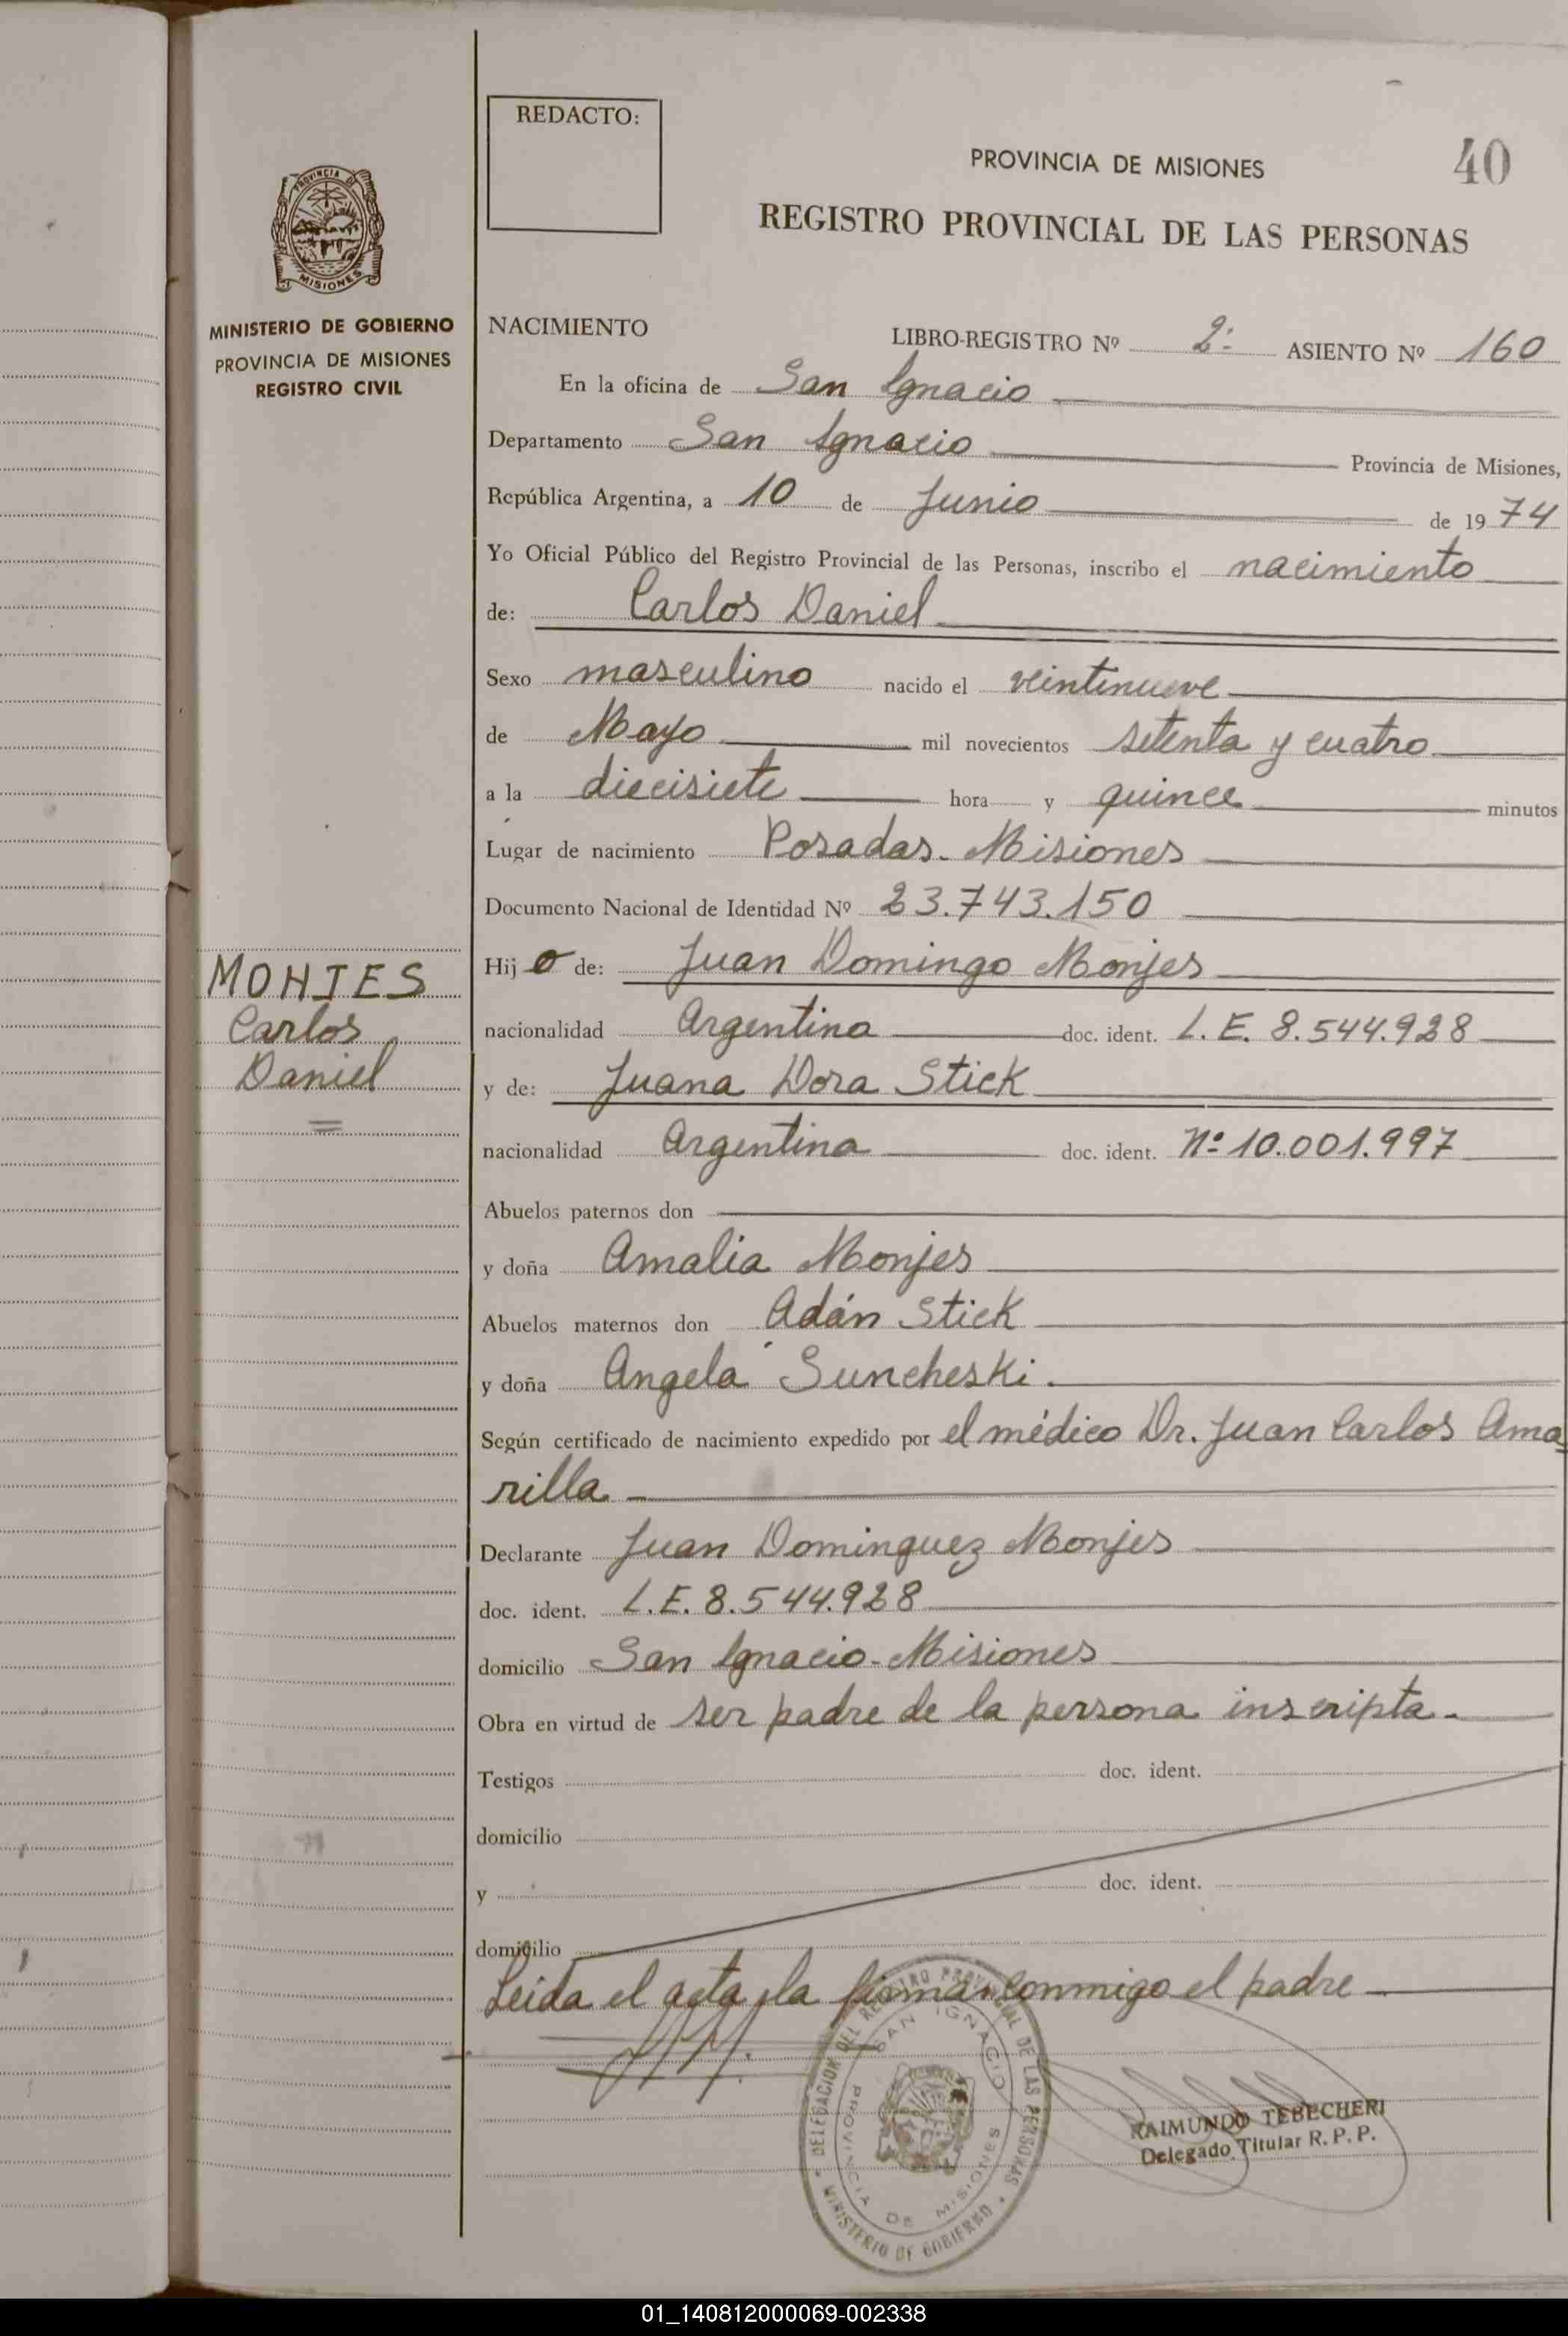 REDACTO:
PROVINCIA DE MISIONES
40
REGISTRO PROVINCIAL DE LAS PERSONAS
PROVINCIA DE
MISIONES
MINISTERIO DE GOBIERNO
PROVINCIA DE MISIONES
REGISTRO CIVIL
NACIMIENTO LIBRO-REGISTRO Nº 2º ASIENTO Nº 160
En la oficina de San Ignacio
Departamento San Ignacio Provincia de Misiones,
República Argentina, a 10 de Junio de 1974
Yo Oficial Público del Registro Provincial de las Personas, inscribo el nacimiento
de: Carlos Daniel
Sexo masculino nacido el veintinueve
de Mayo mil novecientos setenta y cuatro
a la diecisiete hora y quince minutos
Lugar de nacimiento Posadas. Misiones
Documento Nacional de Identidad Nº 23.743.150
MONJES
Carlos
Daniel
Hijo de: Juan Domingo Monjes
nacionalidad Argentina doc. ident. L.E. 8.544.928
y de: Juana Dora Stick
nacionalidad Argentina doc. ident. Nº 10.001.997
Abuelos paternos don
y doña Amalia Monjes
Abuelos maternos don Adán Stick
y doña Angela Suncheski.
Según certificado de nacimiento expedido por el médico Dr. Juan Carlos Ama
rilla
Declarante Juan Dominguez Monjes
doc. ident. L.E. 8.544.928
domicilio San Ignacio-Misiones
Obra en virtud de ser padre de la persona inscripta.
Testigos doc. ident.
domicilio
y doc. ident.
domicilio
Leída el acta, la firma conmigo el padre
DELEGACION DEL REGISTRO PROVINCIAL DE LAS PERSONAS
SAN IGNACIO
PROVINCIA DE MISIONES
MINISTERIO DE GOBIERNO
RAIMUNDO TEBECHERI
Delegado Titular R. P. P.
01_140812000069-002338